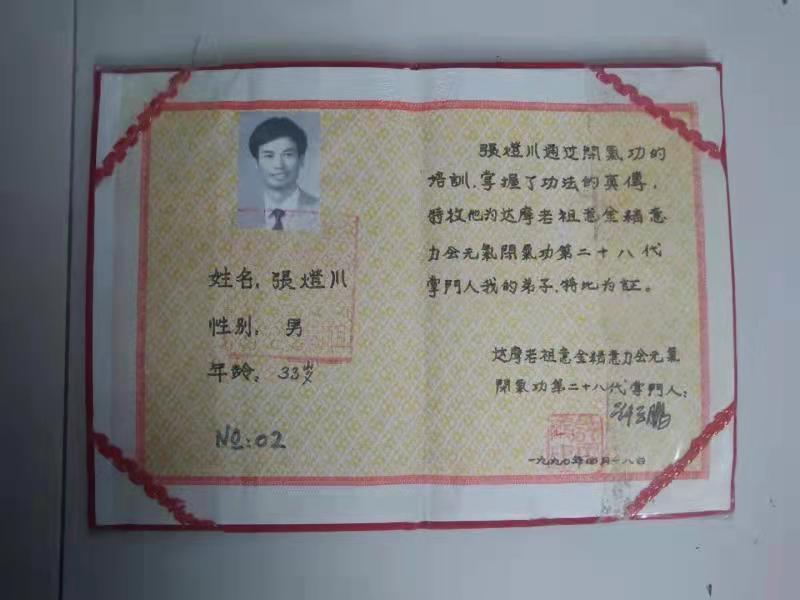 姓名：張燈川
性别：男
年龄：33岁
№：02
張燈川通过閉氣功的
培訓，掌握了功法的真傳，
特收他为达摩老祖意金精意
力会元氣閉氣功第二十八代
掌門人我的弟子，特此为証。
达摩老祖意金精意力会元氣
閉氣功第二十八代掌門人：
一九九〇年四月十八日